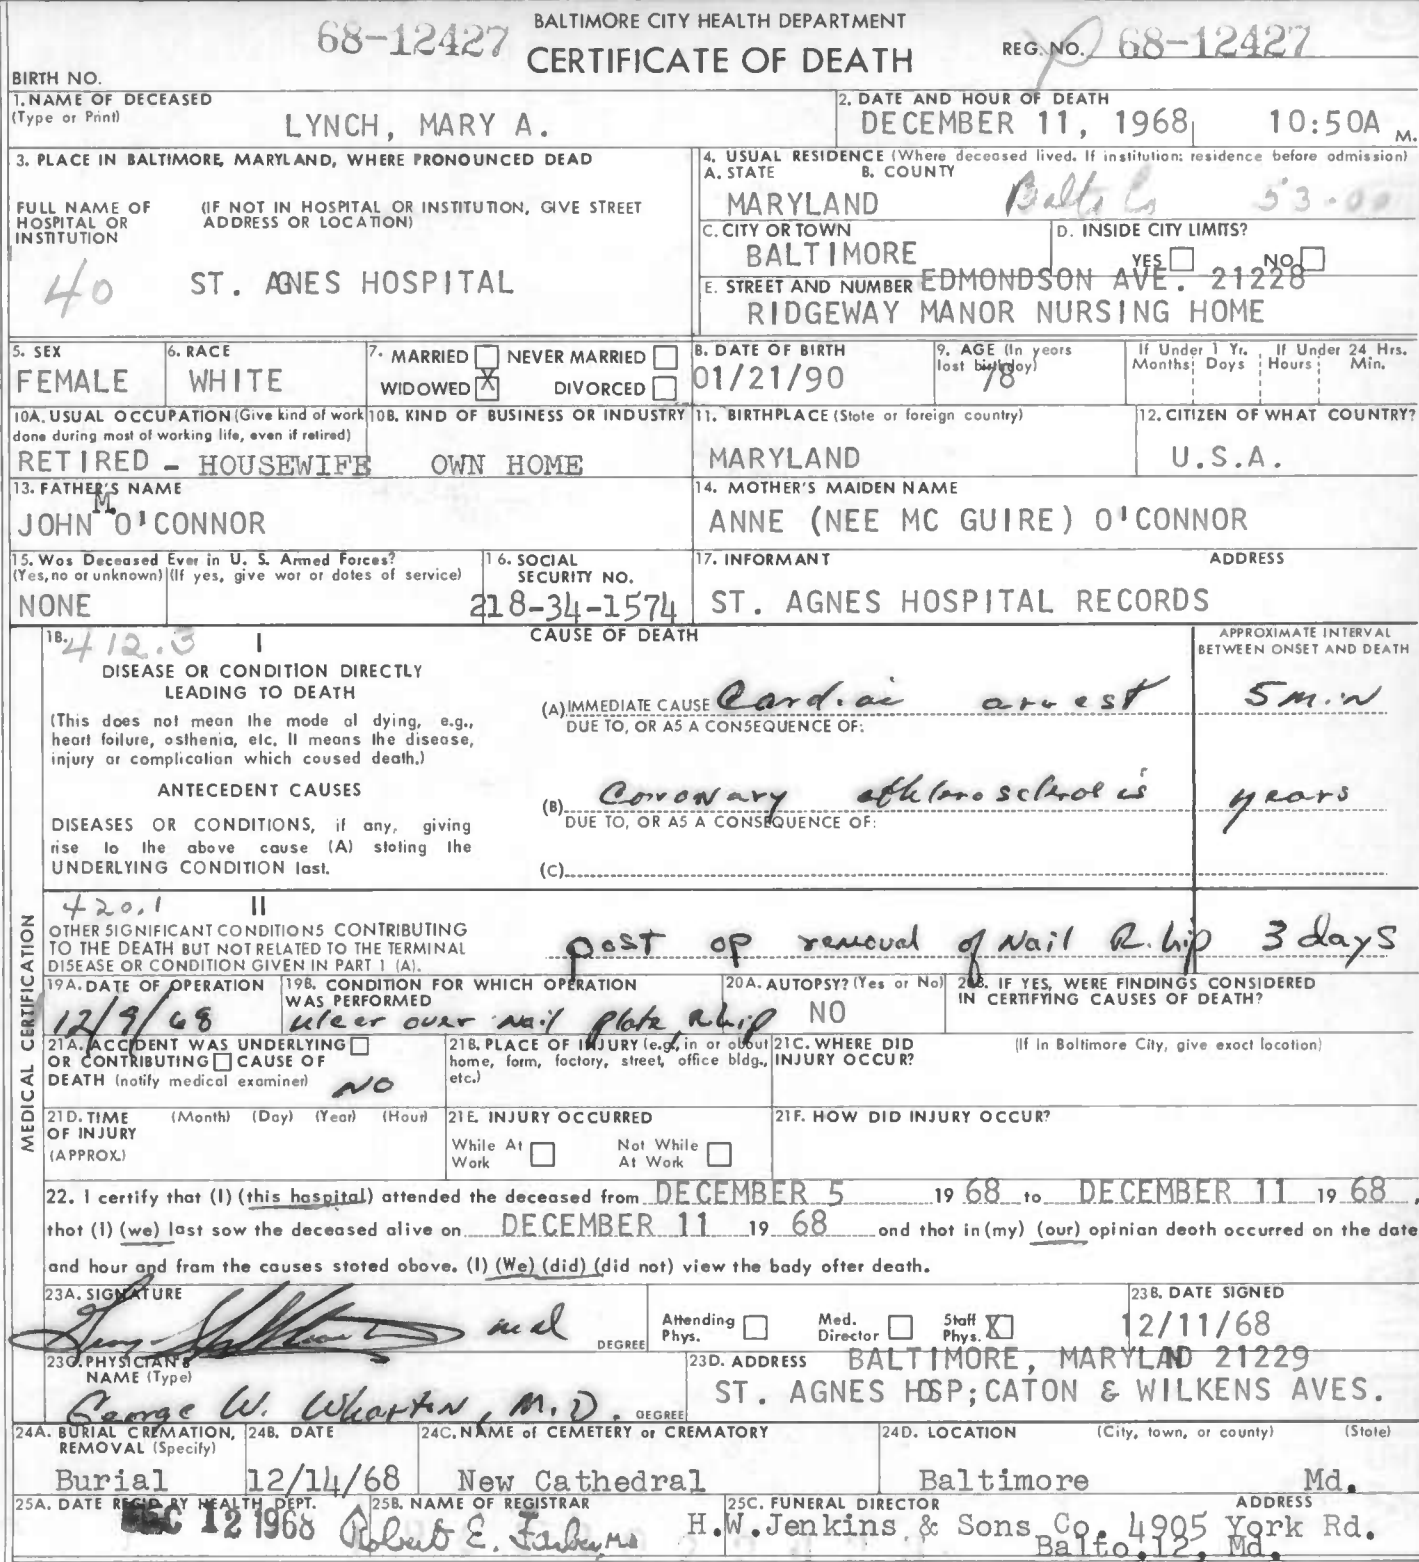 BALTIMORE CITY HEALTH DEPARTMENT
68-12427 CERTIFICATE OF DEATH REG. NO. 68-12427
BIRTH NO.
1. NAME OF DECEASED (Type or Print) LYNCH, MARY A.
2. DATE AND HOUR OF DEATH DECEMBER 11, 1968 10:50A M.
3. PLACE IN BALTIMORE, MARYLAND, WHERE PRONOUNCED DEAD
FULL NAME OF HOSPITAL OR INSTITUTION (IF NOT IN HOSPITAL OR INSTITUTION, GIVE STREET ADDRESS OR LOCATION)
40 ST. AGNES HOSPITAL
4. USUAL RESIDENCE (Where deceased lived. If institution: residence before admission)
A. STATE B. COUNTY
MARYLAND Balto Co 53-00
C. CITY OR TOWN BALTIMORE
D. INSIDE CITY LIMITS? YES NO
E. STREET AND NUMBER EDMONDSON AVE. 21228
RIDGEWAY MANOR NURSING HOME
5. SEX FEMALE
6. RACE WHITE
7. MARRIED NEVER MARRIED
WIDOWED X DIVORCED
8. DATE OF BIRTH 01/21/90
9. AGE (In years last birthday) 78
If Under 1 Yr. Months Days
If Under 24 Hrs. Hours Min.
10A. USUAL OCCUPATION (Give kind of work done during most of working life, even if retired)
RETIRED - HOUSEWIFE
10B. KIND OF BUSINESS OR INDUSTRY
OWN HOME
11. BIRTHPLACE (State or foreign country)
MARYLAND
12. CITIZEN OF WHAT COUNTRY?
U.S.A.
13. FATHER'S NAME
JOHN M O'CONNOR
14. MOTHER'S MAIDEN NAME
ANNE (NEE MC GUIRE) O'CONNOR
15. Was Deceased Ever in U. S. Armed Forces?
(Yes, no or unknown) (If yes, give war or dates of service)
NONE
16. SOCIAL SECURITY NO.
218-34-1574
17. INFORMANT ADDRESS
ST. AGNES HOSPITAL RECORDS
MEDICAL CERTIFICATION
18. 412.3 I CAUSE OF DEATH
APPROXIMATE INTERVAL BETWEEN ONSET AND DEATH
DISEASE OR CONDITION DIRECTLY LEADING TO DEATH
(This does not mean the mode of dying, e.g., heart failure, asthenia, etc. It means the disease, injury or complication which caused death.)
(A) IMMEDIATE CAUSE Cardiac arrest 5 min
DUE TO, OR AS A CONSEQUENCE OF:
ANTECEDENT CAUSES
DISEASES OR CONDITIONS, if any, giving rise to the above cause (A) stating the UNDERLYING CONDITION last.
(B) Coronary athlerosclerosis years
DUE TO, OR AS A CONSEQUENCE OF:
(C)
420.1 II
OTHER SIGNIFICANT CONDITIONS CONTRIBUTING TO THE DEATH BUT NOT RELATED TO THE TERMINAL DISEASE OR CONDITION GIVEN IN PART 1 (A).
post op removal of Nail R. hip 3 days
19A. DATE OF OPERATION 12/9/68
19B. CONDITION FOR WHICH OPERATION WAS PERFORMED
ulcer over nail plate R hip
20A. AUTOPSY? (Yes or No) NO
20B. IF YES, WERE FINDINGS CONSIDERED IN CERTIFYING CAUSES OF DEATH?
21A. ACCIDENT WAS UNDERLYING OR CONTRIBUTING CAUSE OF DEATH (notify medical examiner) NO
21B. PLACE OF INJURY (e.g., in or about home, farm, factory, street, office bldg., etc.)
21C. WHERE DID INJURY OCCUR? (If in Baltimore City, give exact location)
21D. TIME OF INJURY (APPROX.) (Month) (Day) (Year) (Hour)
21E. INJURY OCCURRED
While At Work Not While At Work
21F. HOW DID INJURY OCCUR?
22. I certify that (I) (this hospital) attended the deceased from DECEMBER 5 19 68 to DECEMBER 11 19 68,
that (I) (we) last saw the deceased alive on DECEMBER 11 19 68 and that in (my) (our) opinion death occurred on the date
and hour and from the causes stated above. (I) (We) (did) (did not) view the body after death.
23A. SIGNATURE DEGREE
Attending Phys. Med. Director Staff Phys. X
23B. DATE SIGNED 12/11/68
23C. PHYSICIAN'S NAME (Type)
George W. Wharton, M.D. DEGREE
23D. ADDRESS BALTIMORE, MARYLAD 21229
ST. AGNES HOSP; CATON & WILKENS AVES.
24A. BURIAL CREMATION, REMOVAL (Specify) Burial
24B. DATE 12/14/68
24C. NAME of CEMETERY or CREMATORY New Cathedral
24D. LOCATION (City, town, or county) (State)
Baltimore Md.
25A. DATE REC'D BY HEALTH DEPT. DEC 12 1968
25B. NAME OF REGISTRAR Robert E. Farber, MD
25C. FUNERAL DIRECTOR ADDRESS
H.W.Jenkins & Sons Co. 4905 York Rd.
Balto.12, Md.